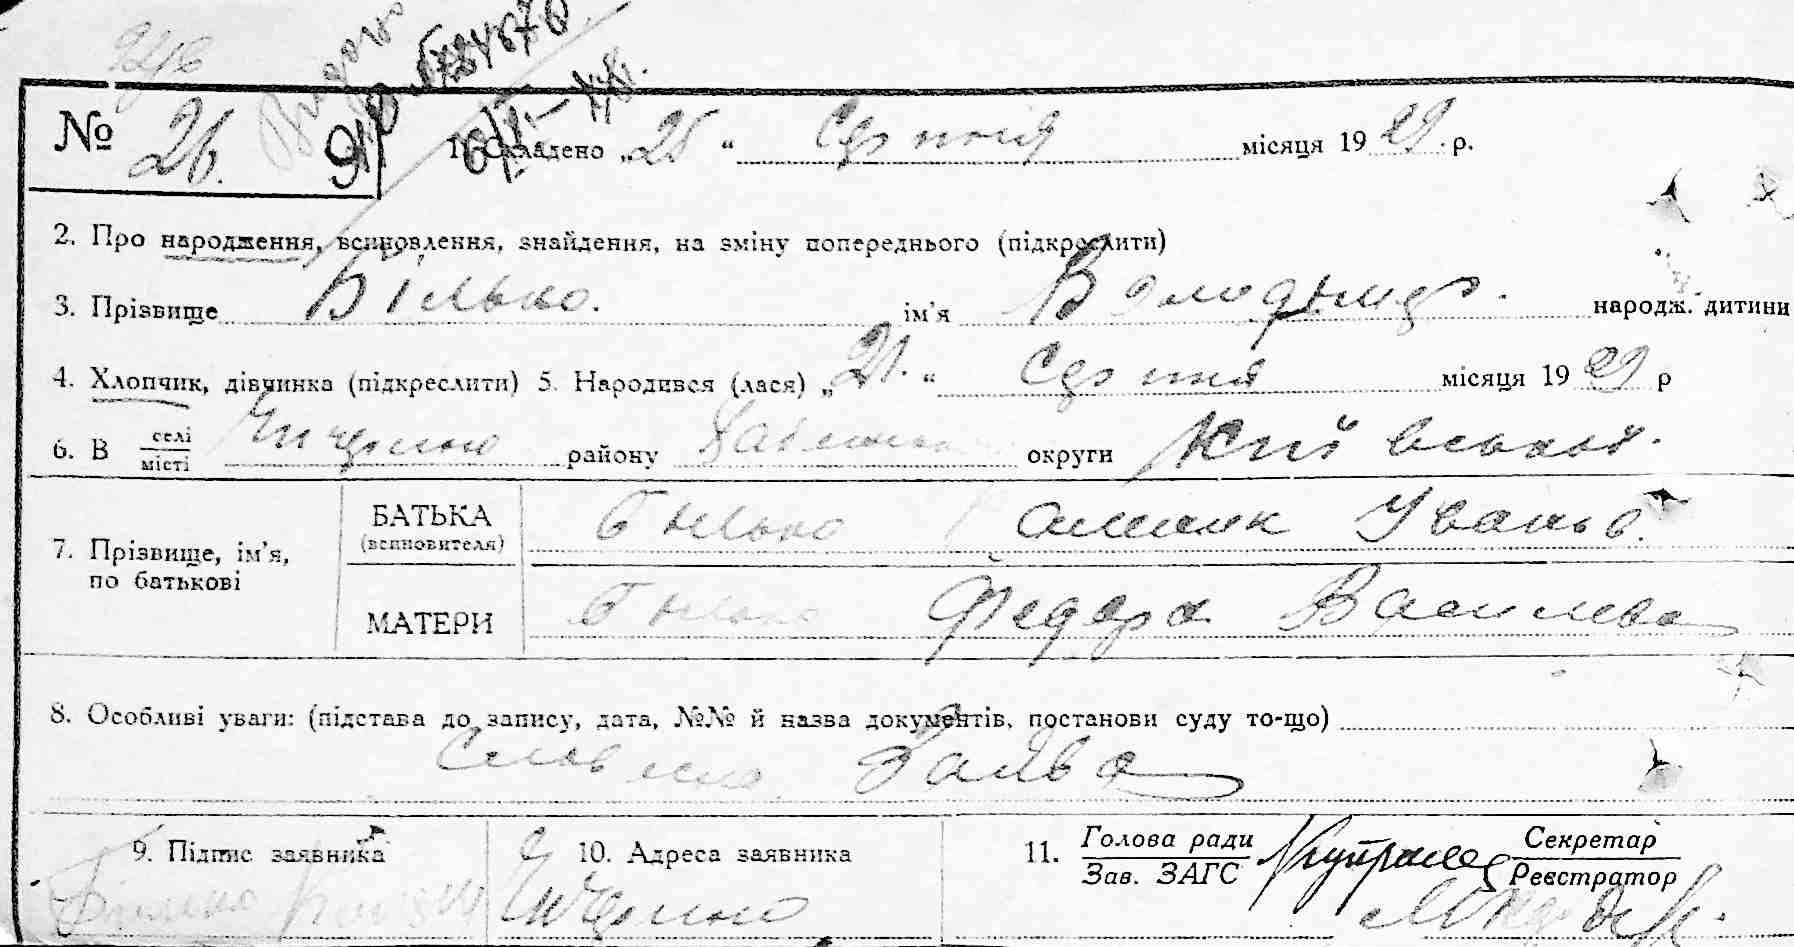 № 26. 1. Складено „25 “ Серпня місяця 1929 р.
2. Про народження, всиновлення, знайдення, на зміну попереднього (підкреслити)
3. Прізвище Білько. ім'я Володымер. народж. дитини
4. Хлопчик, дівчинка (підкреслити) 5. Народився (лася) „21. “ Серпня місяця 1929 р
6. В селі місті району округи Київської.
7. Прізвище, ім'я, по батькові
БАТЬКА (всиновителя) Билько Иванов.
МАТЕРИ Билько Федора Василева
8. Особливі уваги: (підстава до запису, дата, №№ й назва документів, постанови суду то-що)
Словесна Заява
9. Підпис заявника 10. Адреса заявника 11. Голова ради Зав. ЗАГС Секретар Реєстратор